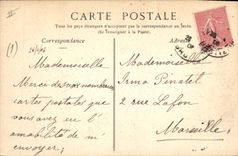 CARTE POSTALE
Tous les pays étrangers n'acceptent pas la correspondance au recto.
(Se renseigner à la Poste).
Correspondance
Mademoiselle
Merci des nombreuses
cartes postales que
vous avez eu l'
amabilité de m'
envoyer ;
Mademoiselle
Irma Pinatet
2 rue Lafon
Marseille